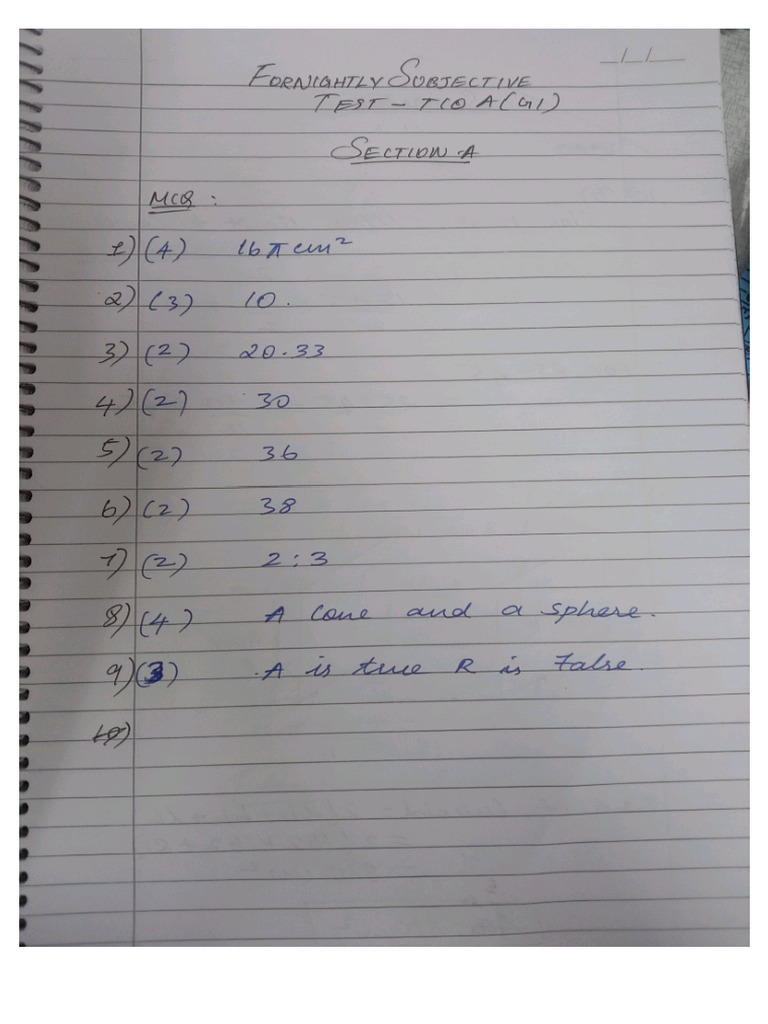 _/_/_
FORNIGHTLY SUBJECTIVE
TEST - T10 A(G1)
SECTION-A
MCQ :
1) (4) 16π cm²
2) (3) 10.
3) (2) 20.33
4) (2) 30
5) (2) 36
6) (2) 38
7) (2) 2:3
8) (4) A cone and a sphere.
9) (3) A is true R is False.
10)